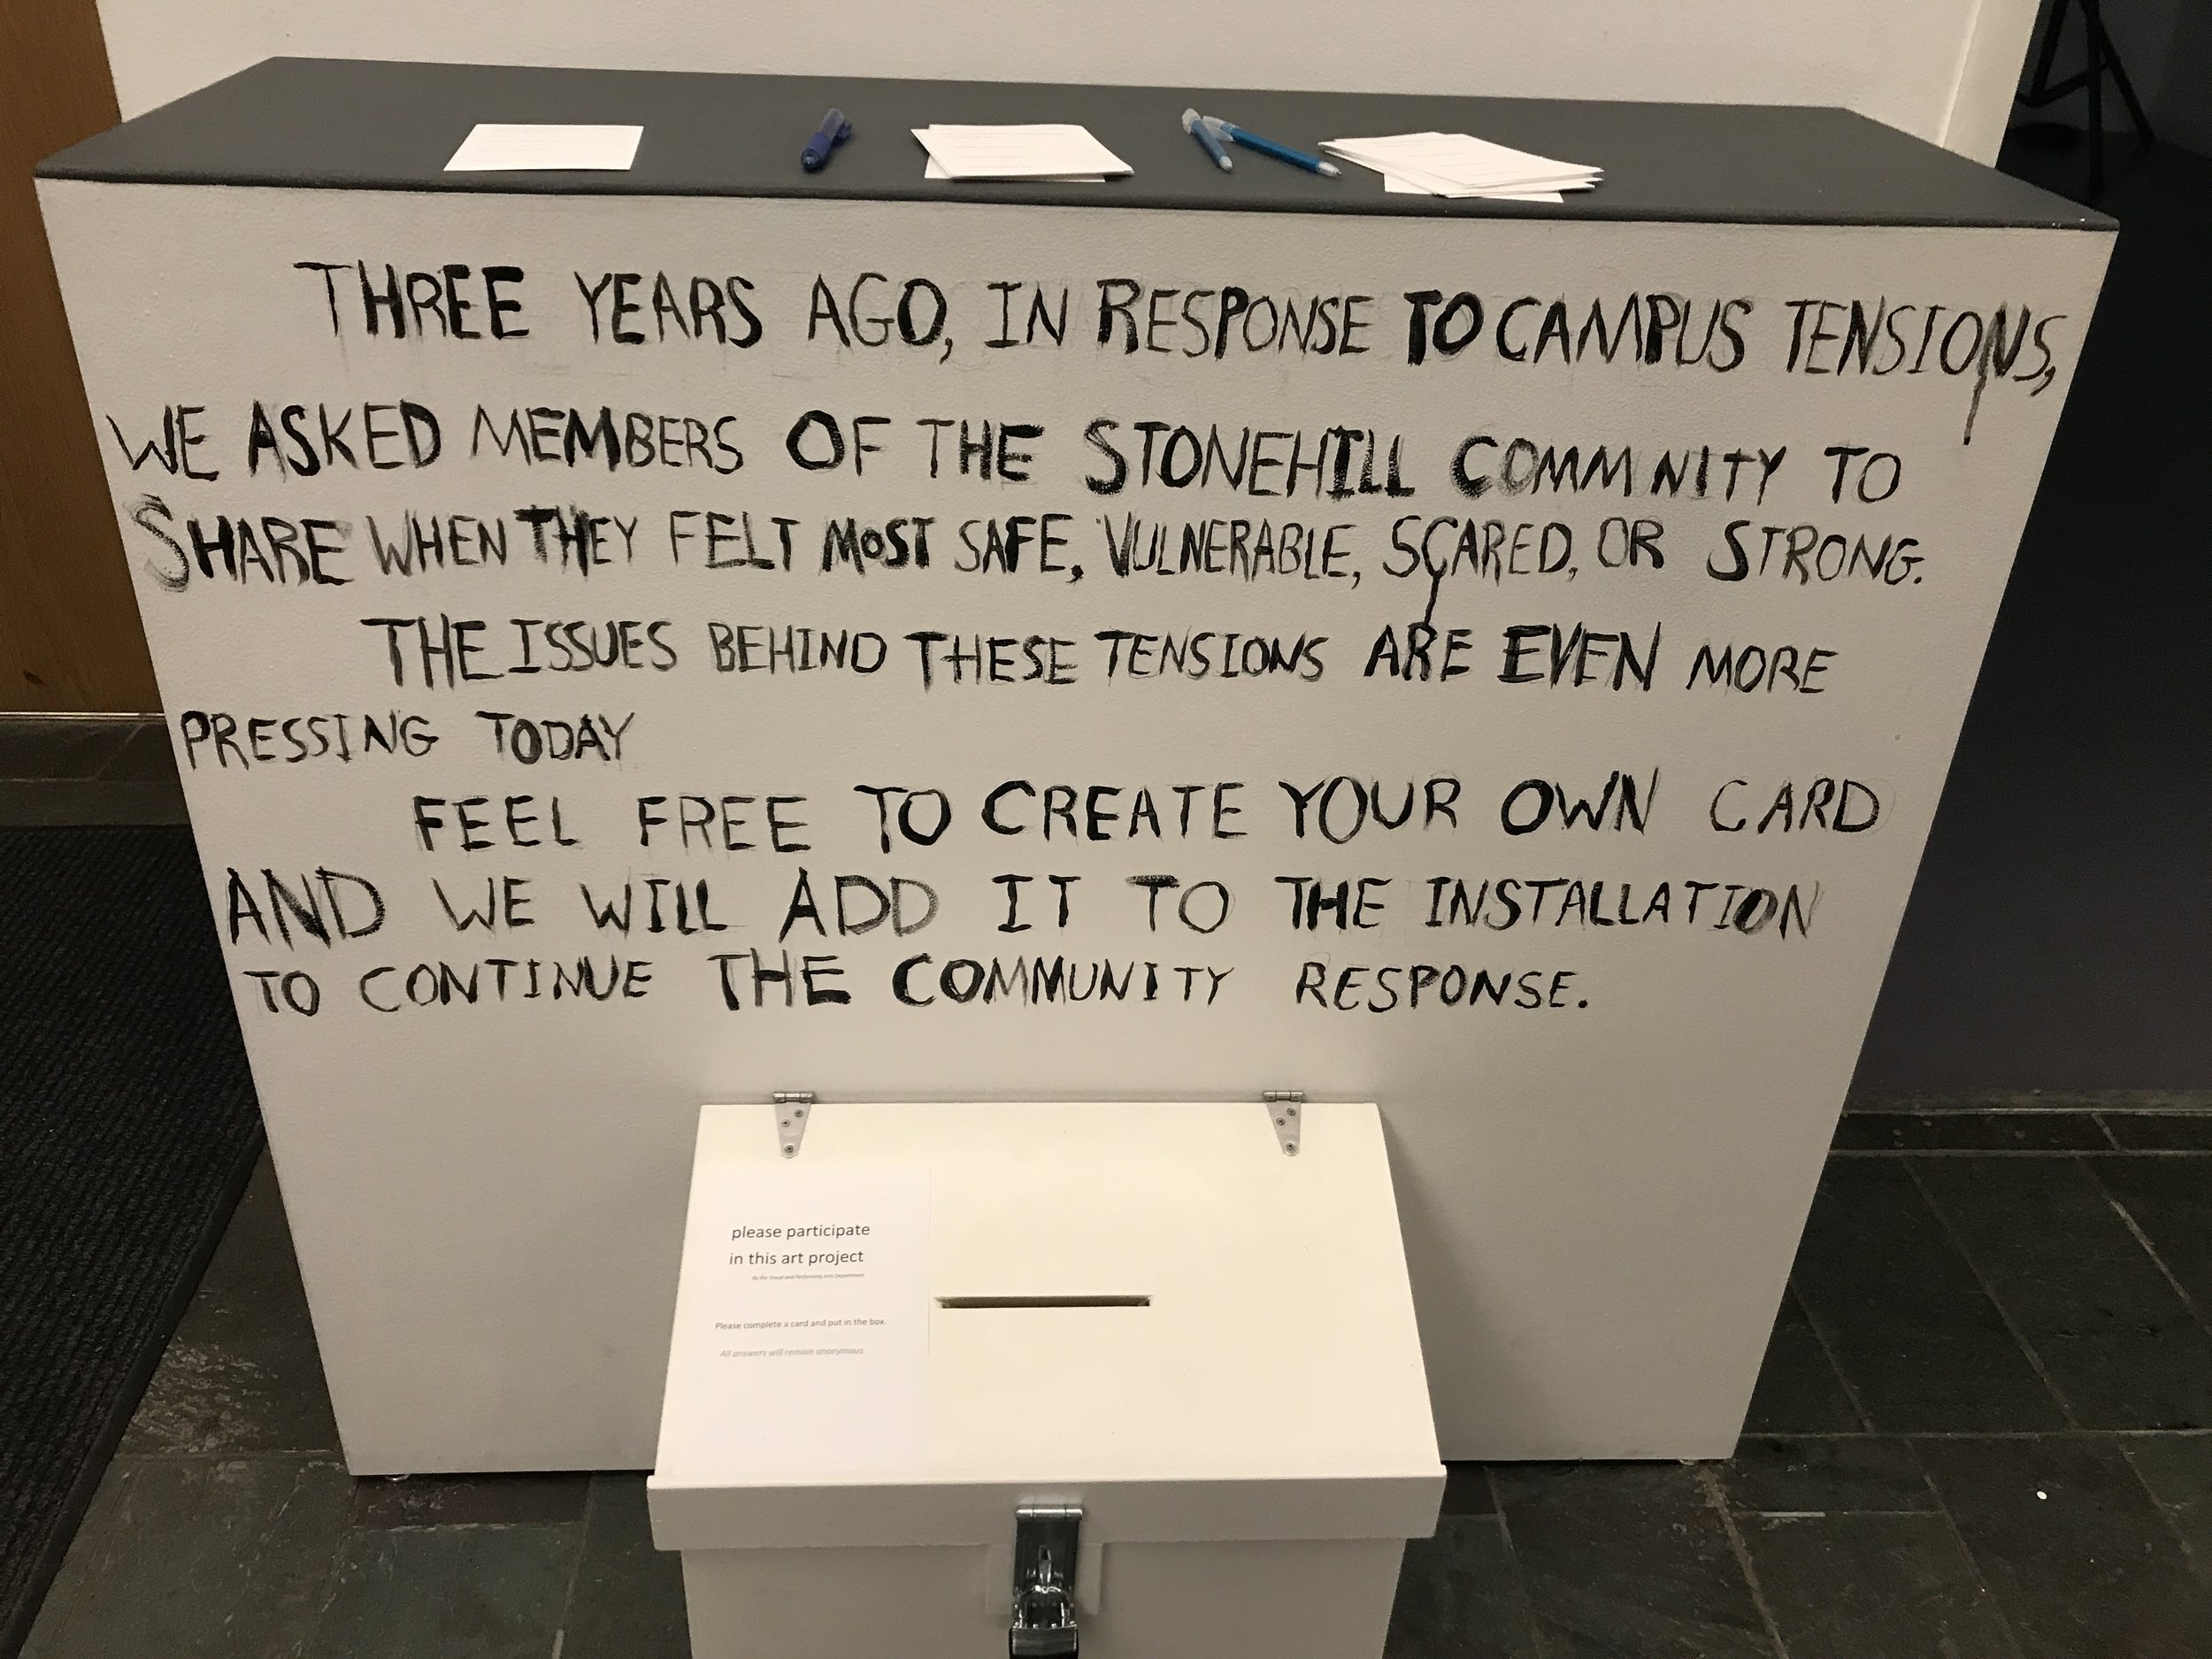 THREE YEARS AGO, IN RESPONSE TO CAMPUS TENSIONS,
WE ASKED MEMBERS OF THE STONEHILL COMMUNITY TO
SHARE WHEN THEY FELT MOST SAFE, VULNERABLE, SCARED, OR STRONG.
THE ISSUES BEHIND THESE TENSIONS ARE EVEN MORE
PRESSING TODAY
FEEL FREE TO CREATE YOUR OWN CARD
AND WE WILL ADD IT TO THE INSTALLATION
TO CONTINUE THE COMMUNITY RESPONSE.
please participate
in this art project
By the Visual and Performing Arts Department
Please complete a card and put in the box.
All answers will remain anonymous.